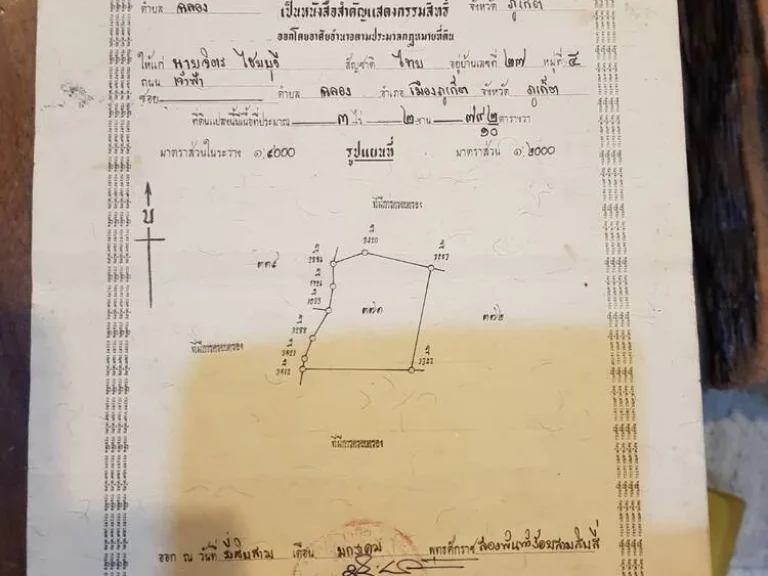 ตำบล ฉลอง จังหวัด ภูเก็ต
เป็นหนังสือสำคัญแสดงกรรมสิทธิ์
ออกโดยอาศัยอำนาจตามประมวลกฎหมายที่ดิน
ให้แก่ นายจิตร ไชยบุรี สัญชาติ ไทย อยู่บ้านเลขที่ ๒๗ หมู่ที่ ๕
ถนน เจ้าฟ้า
ซอย ตำบล ฉลอง อำเภอ เมืองภูเก็ต จังหวัด ภูเก็ต
ที่ดินแปลงนี้มีเนื้อที่ประมาณ ๓ ไร่ ๒ งาน ๗๙ ๒/๑๐ ตารางวา
มาตราส่วนในระวาง ๑:๔๐๐๐ รูปแผนที่ มาตราส่วน ๑:๒๐๐๐
น
ที่มีการครอบครอง
๓๗๑
๓๗๒
ที่มีการครอบครอง
ที่มีการครอบครอง
ออก ณ วันที่ ยี่สิบสาม เดือน มกราคม พุทธศักราช สองพันห้าร้อยสามสิบสี่